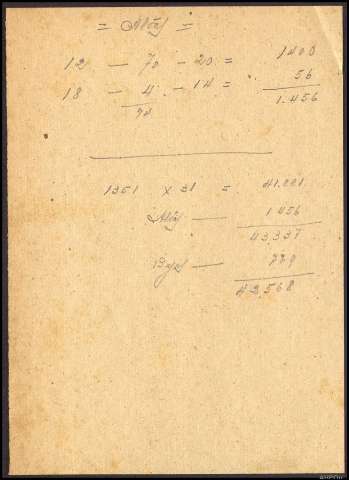 = Altas =
12 — 70 — 20 = 1400
18 — 4 — 14 = 56
74 1.456
1351 x 31 = 41.881
Altas — 1456
43.337
Bajas — 769
42.568